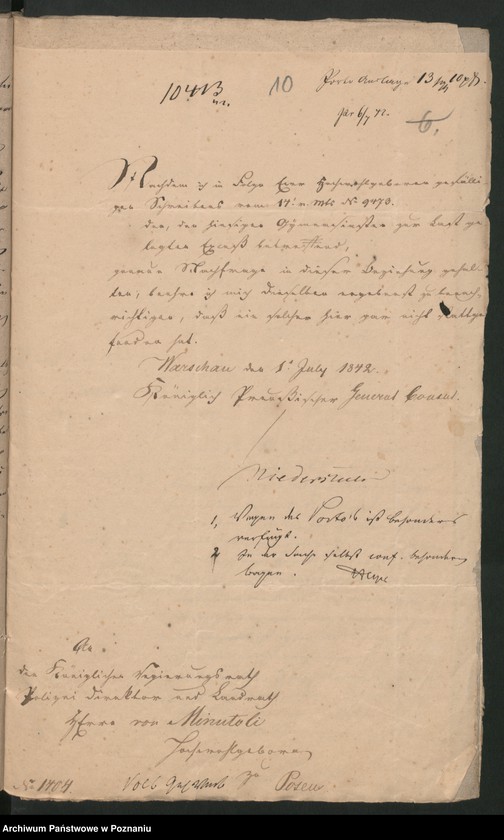 10413
10
Porto Auslage 13 sgr 10 pf.
pr 6/7 42.
6.
Nachdem ich in Folge Euer Hochwohlgeboren gefälli-
gen Schreibens vom 14t v. Mts No 9473.
den, den hiesigen Gymnasiasten zur Last ge-
legten Exceß betreffend,
genaue Nachfrage in dieser Beziehung gehal-
ten, beehre ich mich Denselben ergebenst zu benach-
richtigen, daß ein solcher hier gar nicht stattge-
funden hat.
Warschau den 1t July 1842.
Königlich Preußischer General Consul.
Niederstetter
1, Wegen des Porto's ist besonders
verfügt.
2, In der Sache selbst conf. besondern
bogen.
An
den Königlichen Regierungsrath
Polizei Direktor und Landrath
Herrn von Minutoli
Hochwohlgeboren
zu
Posen
No 1704.
Archiwum Państwowe w Poznaniu